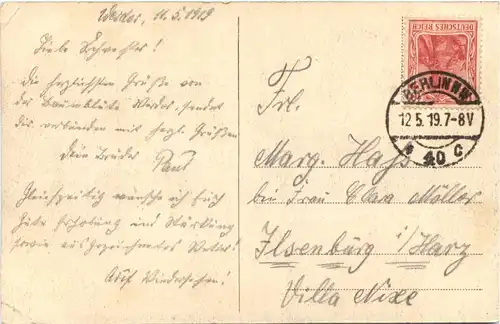 Werder, 11.5.1919
Liebe Schwester!
Die herzlichsten Grüße von
der Baumblüte Werder, sendet
dir verbunden mit herzl. Grüßen
Dein Bruder Paul
Gleichzeitig wünsche ich Euch
gute Erholung und Stärkung
sowie ausgezeichnetes Wetter!
Auf Wiedersehen!
DEUTSCHES REICH
BERLIN NW
12.5.19.7-8V
* 40 c
Frl.
Marg. Hass
bei Frau Clara Möller
Ilsenburg i/Harz
Villa Nixe